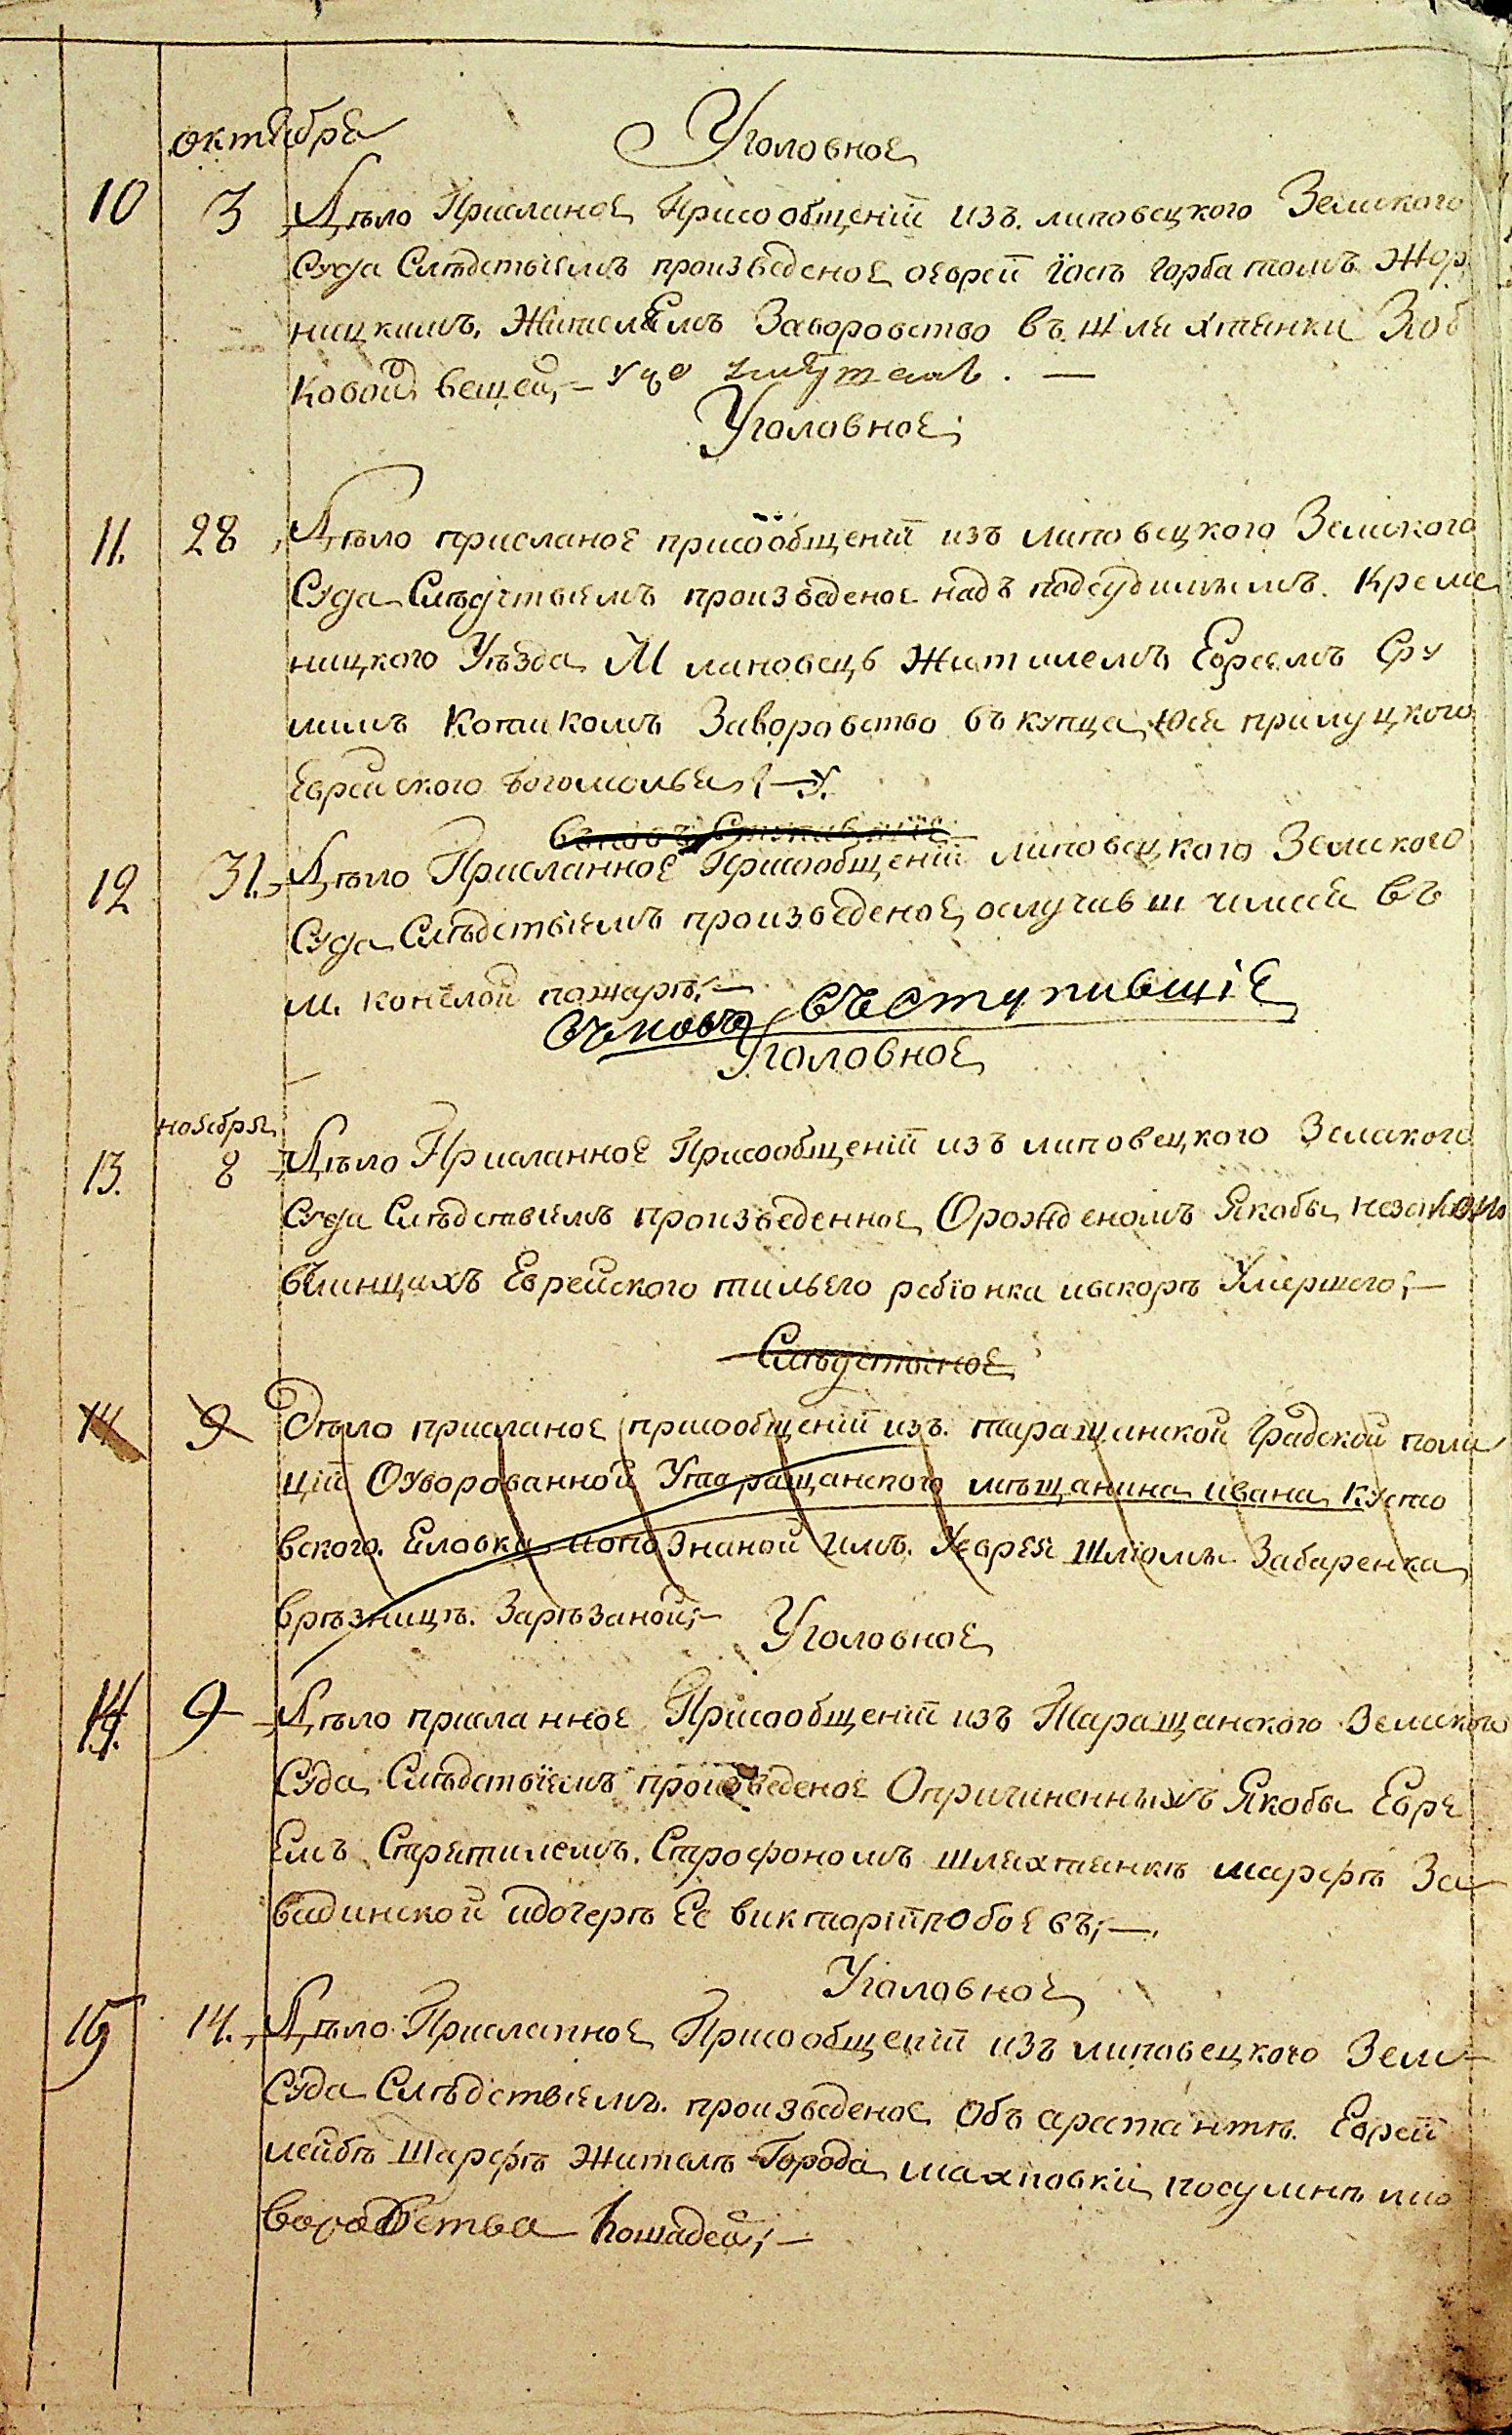 октября
Уголовное
10 3 Дѣло Присланое Присообщенiй изъ. липовецкого Земского
Суда Слѣдствiемъ произведеное оеврей Iосѣ Горбатомъ Жор
ницкимъ, Жителемъ Заворовство въ шляхтянки
ковой вещей,–
Уголовное;
11. 28 Дѣло присланое присообщенiй изъ липовецкого Земского
Суда Слѣдствiемъ произведеное надъ подсудимымъ. Креме
ницкого Уѣзда М Лановецъ Жителемъ Евреемъ Сру
лимъ Коганкомъ Заворовство въ купца Юся прилуцкого
Еврейского богомолья
12 31. Дѣло Присланное Присообщенiй липовецкого Земского
Суда Слѣдствiемъ произведеное ослучившимся въ
м. конелой пожарѣ;–
въновь въступившiе
Уголовное
ноября
13. 8 Дѣло Присланное Присообщенiй изъ липовецкого Земского
Суда Слѣдствiемъ произведенное Орожденомъ Якобы
влинцахъ Еврейского ребiонка ивскорѣ Умершего;–
Слѣдственое
14 9 Дѣло присланое присообщенiй изъ. таращанской Градской поли
цiй Оуворованной Утаращанского мѣщанина ивана Кусто
вского. Еловки ипознаной имъ. Уеврея Шлiомы Забаренка
врѣзницѣ. Зарѣзаной;–
Уголовное
14. 9 Дѣло присланное Присообщенiй изъ Таращанского Земского
Суда Слѣдствiемъ произведеное Опричиненныхъ Якобы Евре
Емъ Стрятилемъ. Строфономъ шляхтянкѣ марфѣ За
вадинской идочерѣ Ее викторiй побоевъ;–.
Уголовное
15 14. Дѣло Присланное Присообщенiй изъ липовецкого Зем
Суда Слѣдствiемъ. произведеное Объ арестантѣ. Еврей
лейбѣ Шарфѣ Жителѣ Города махновки
вороства Лошадей;–